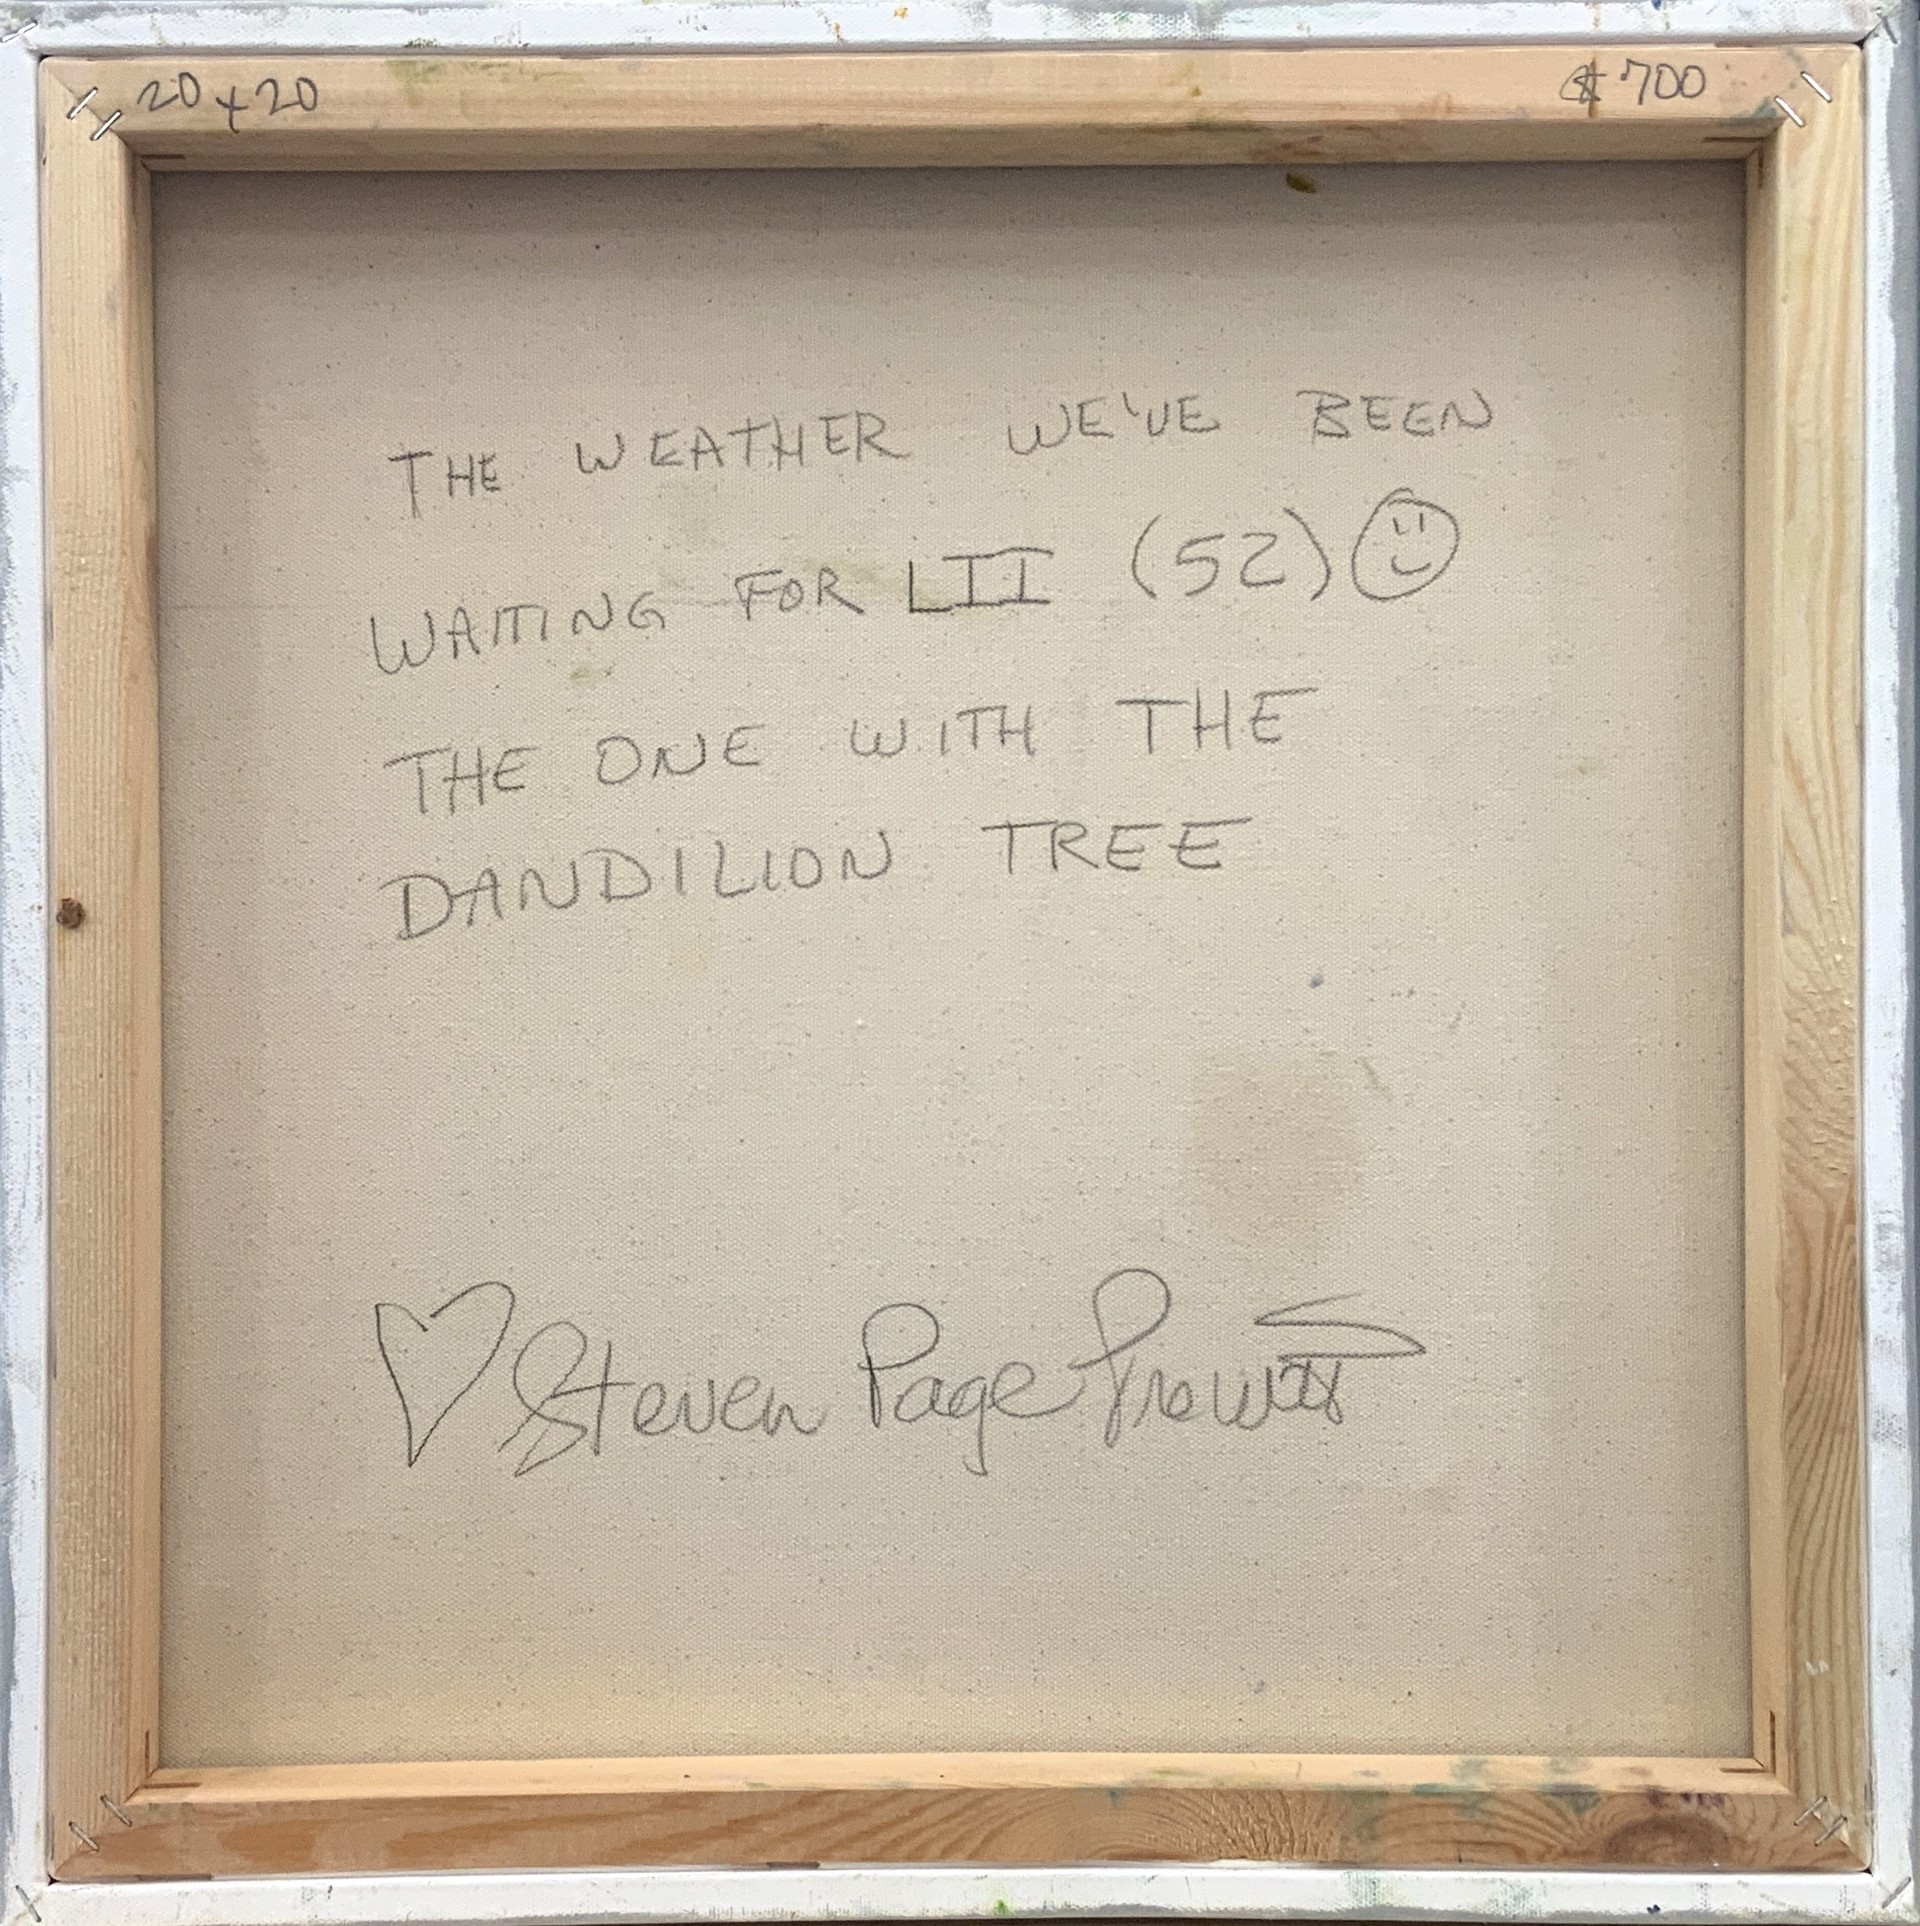 20x20 $700
THE WEATHER WE'VE BEEN
WAITING FOR LII (52)
THE ONE WITH THE
DANDILION TREE
Steven Page Prewitt